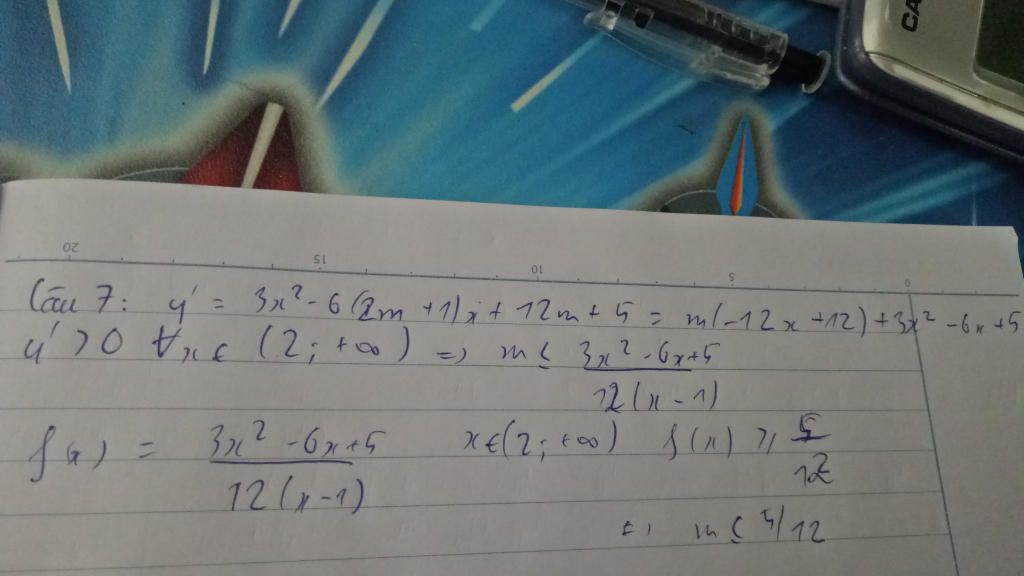 CA
20 15 10 5 0
Câu 7: y' = 3x² - 6(2m + 1)x + 12m + 5 = m(-12x + 12) + 3x² - 6x + 5
y' > 0 ∀x ∈ (2; +∞) => m ≤ (3x² - 6x + 5)/(12(x - 1))
f(x) = (3x² - 6x + 5)/(12(x - 1)) x ∈ (2; +∞) f(x) ≥ 5/12
m ≤ 5/12